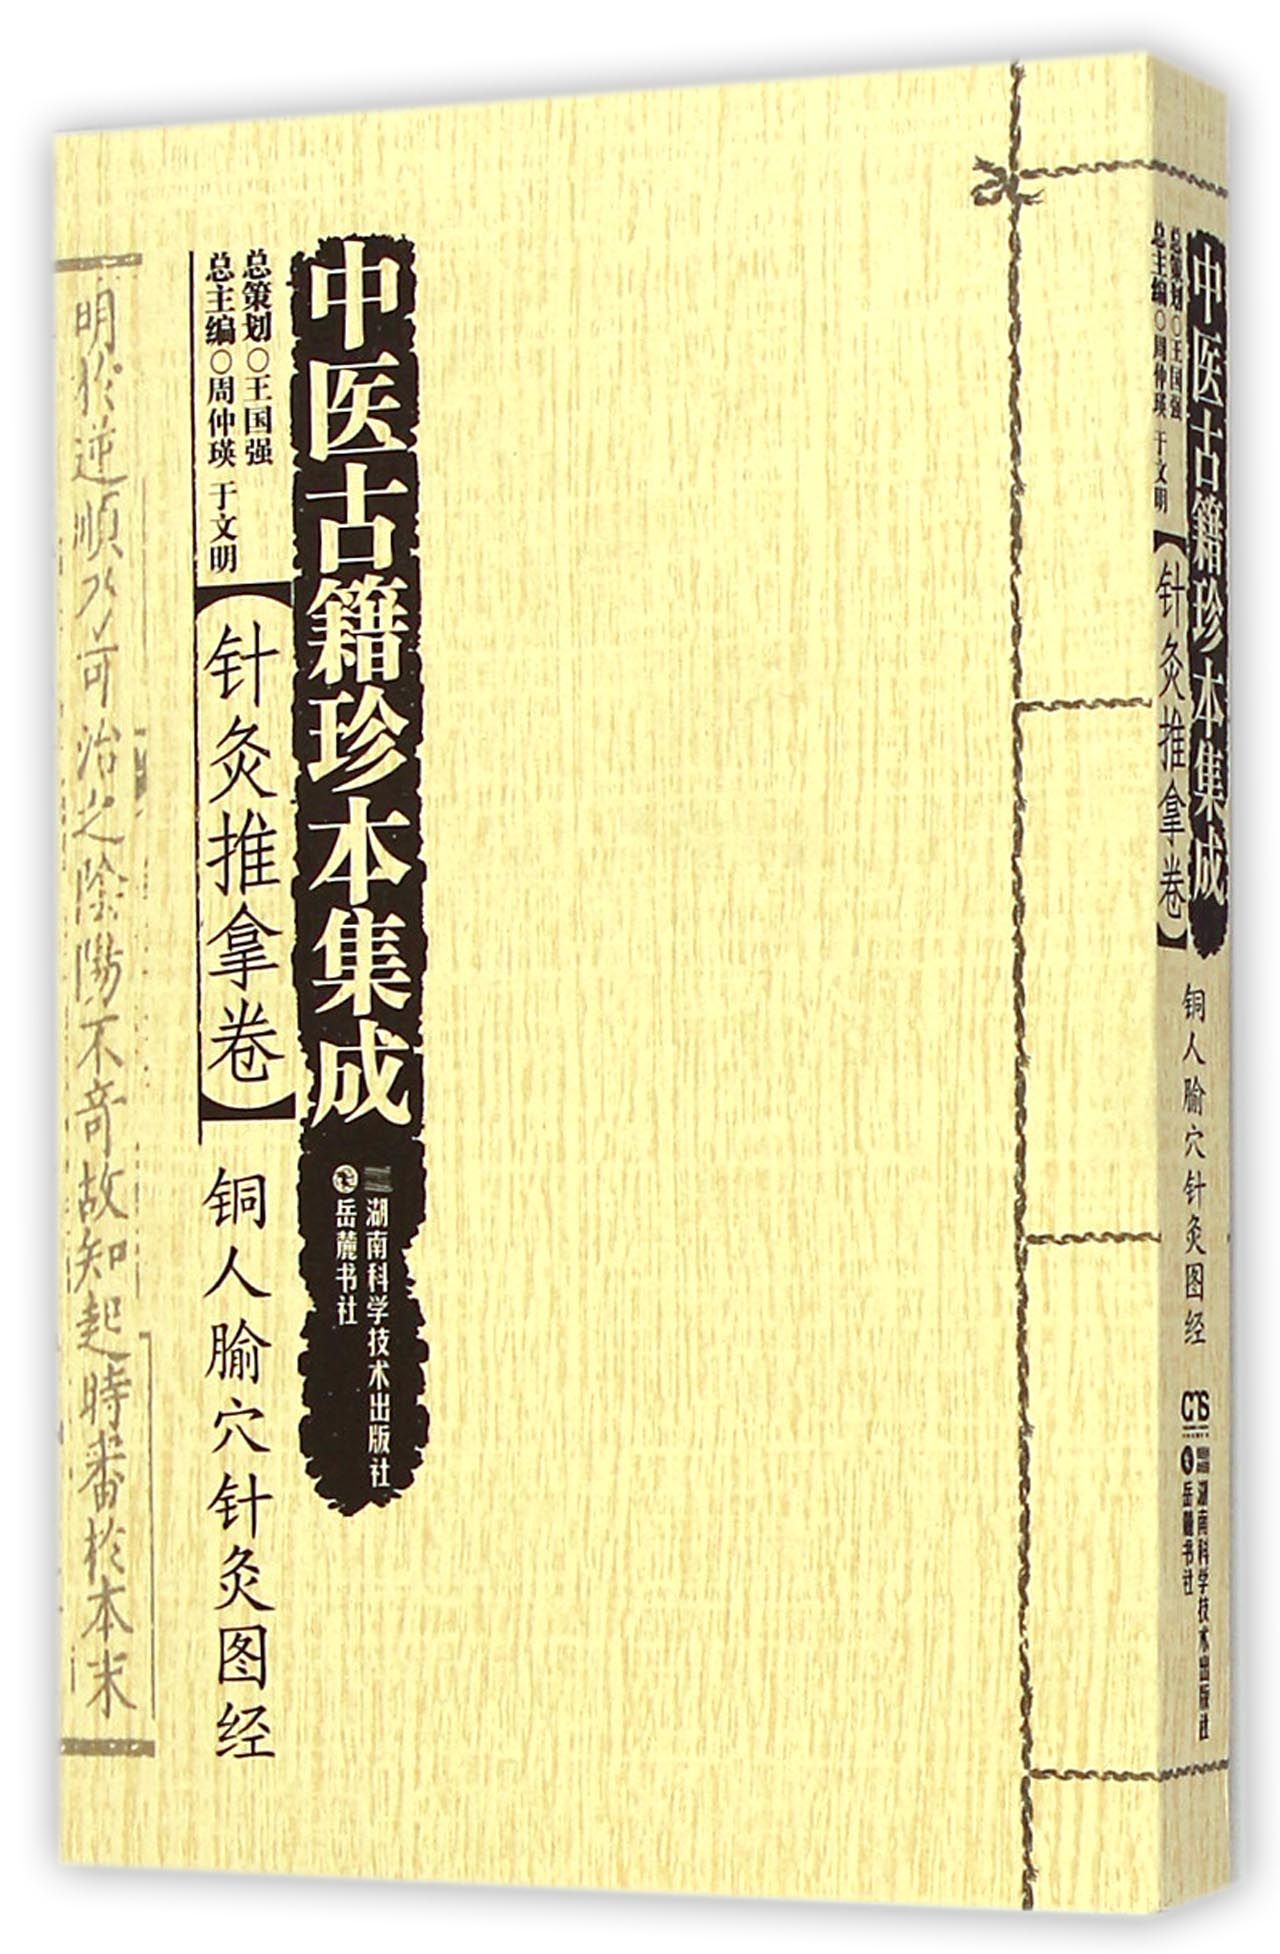 中医古籍珍本集成
湖南科学技术出版社
岳麓书社
总策划○王国强
总主编○周仲瑛 于文明
【针灸推拿卷】
铜人腧穴针灸图经
明於逆順乃可治之陰陽不奇故知起時審於本末
中医古籍珍本集成
总策划○王国强
总主编○周仲瑛 于文明
【针灸推拿卷】
铜人腧穴针灸图经
湖南科学技术出版社
岳麓书社